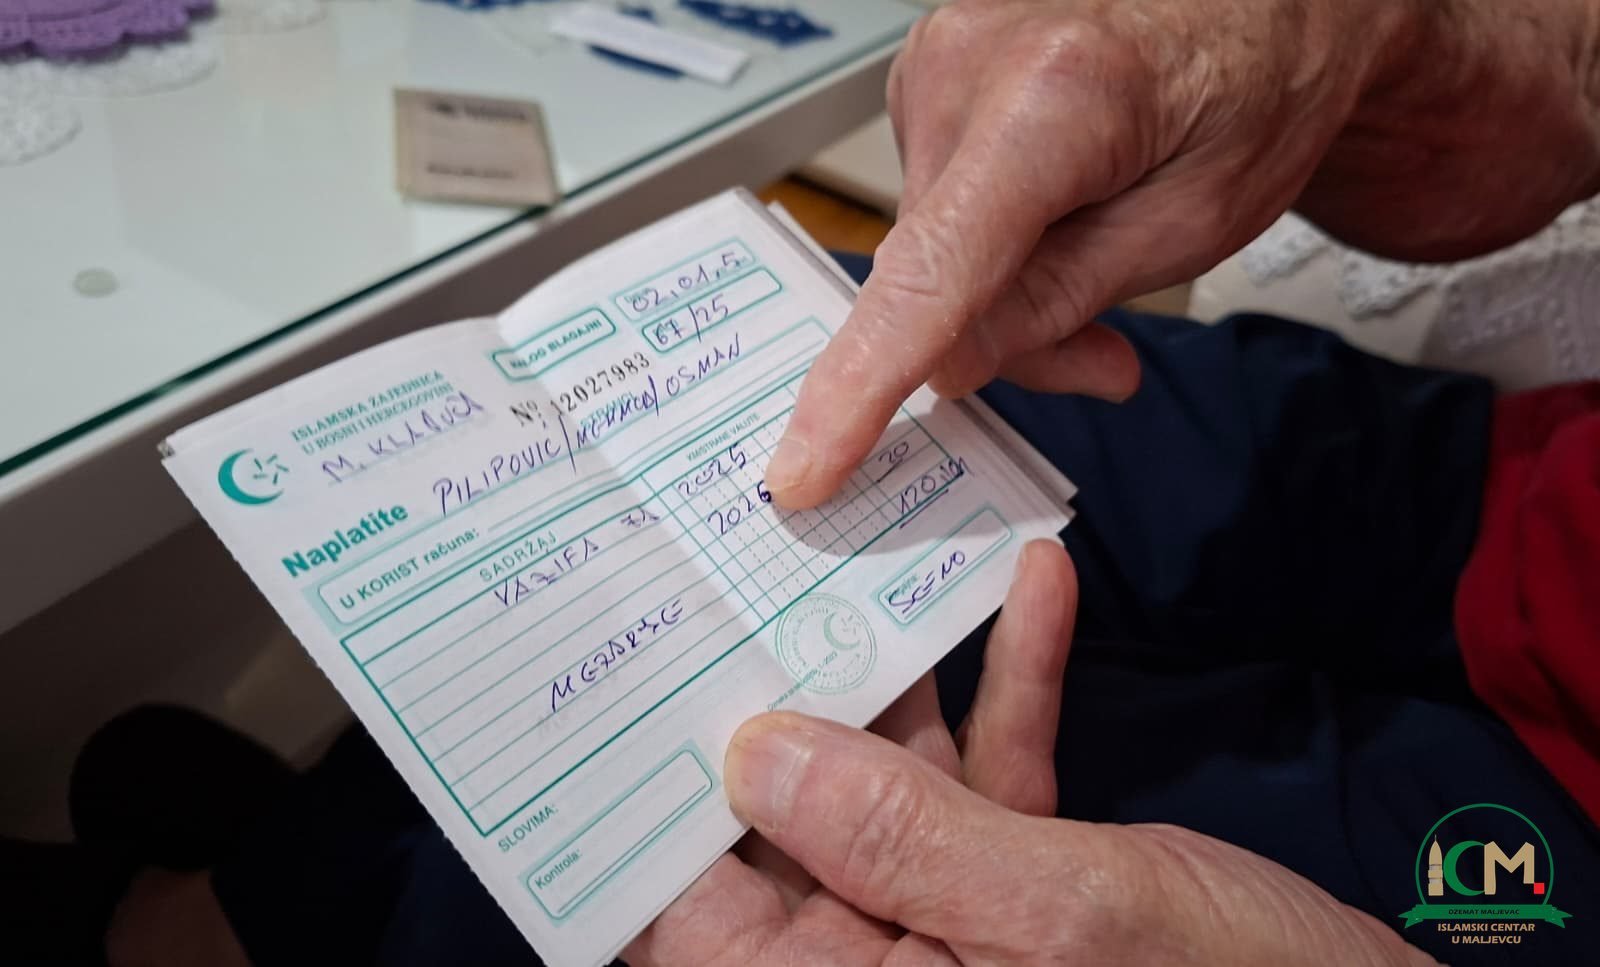 ISLAMSKA ZAJEDNICA
U BOSNI I HERCEGOVINI
M. KLADUŠA
NALOG BLAGAJNI
02.01.5
67/25
No. 12027983
STRANCI
Naplatite PILIPOVIĆ/MEHMED/OSMAN
U KORIST računa:
SADRŽAJ
KM/STRANE VALUTE
VAZIFA ZA 2025
2026 20
MEZARJE 120,00
SLOVIMA:
Kontrola:
ICM.
DŽEMAT MALJEVAC
ISLAMSKI CENTAR
U MALJEVCU